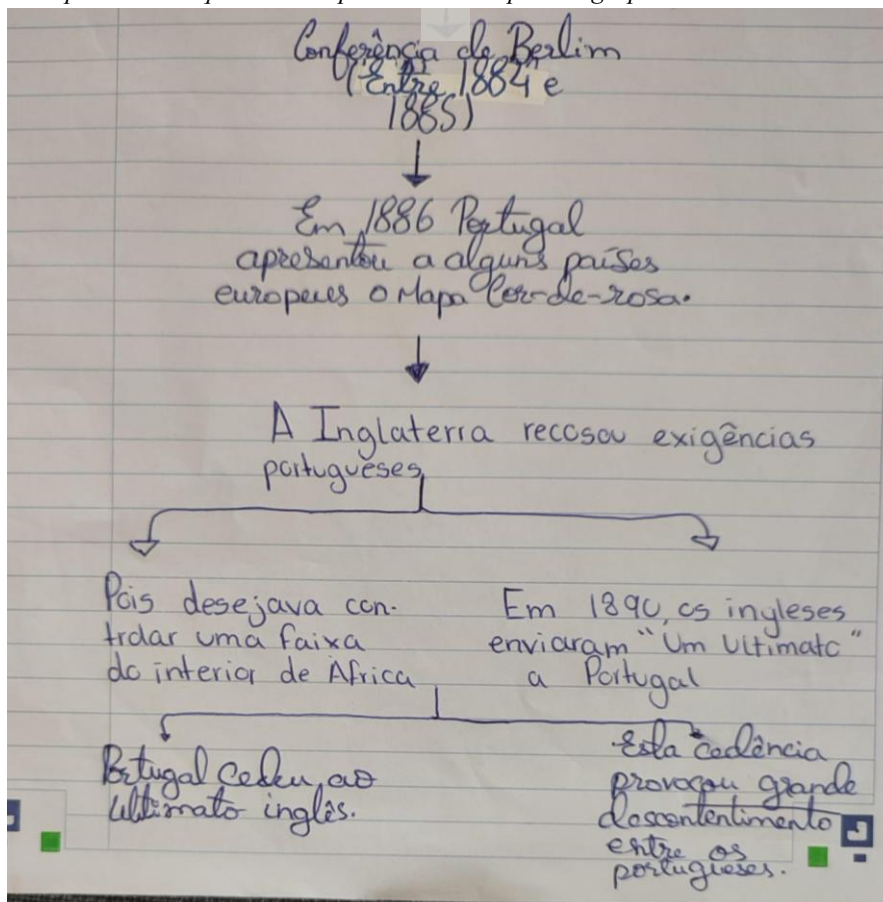 Conferência de Berlim
(Entre 1884 e
1885)
Em 1886 Portugal
apresentou a alguns países
europeus o Mapa Cor-de-rosa.
A Inglaterra recosou exigências
portugueses
Pois desejava con-
trolar uma faixa
do interior de África
Em 1890, os ingleses
enviaram "Um Ultimato"
a Portugal
Portugal cedeu ao
ultimato inglês.
Esta cedência
provocou grande
descontentimento
entre os
portugueses.